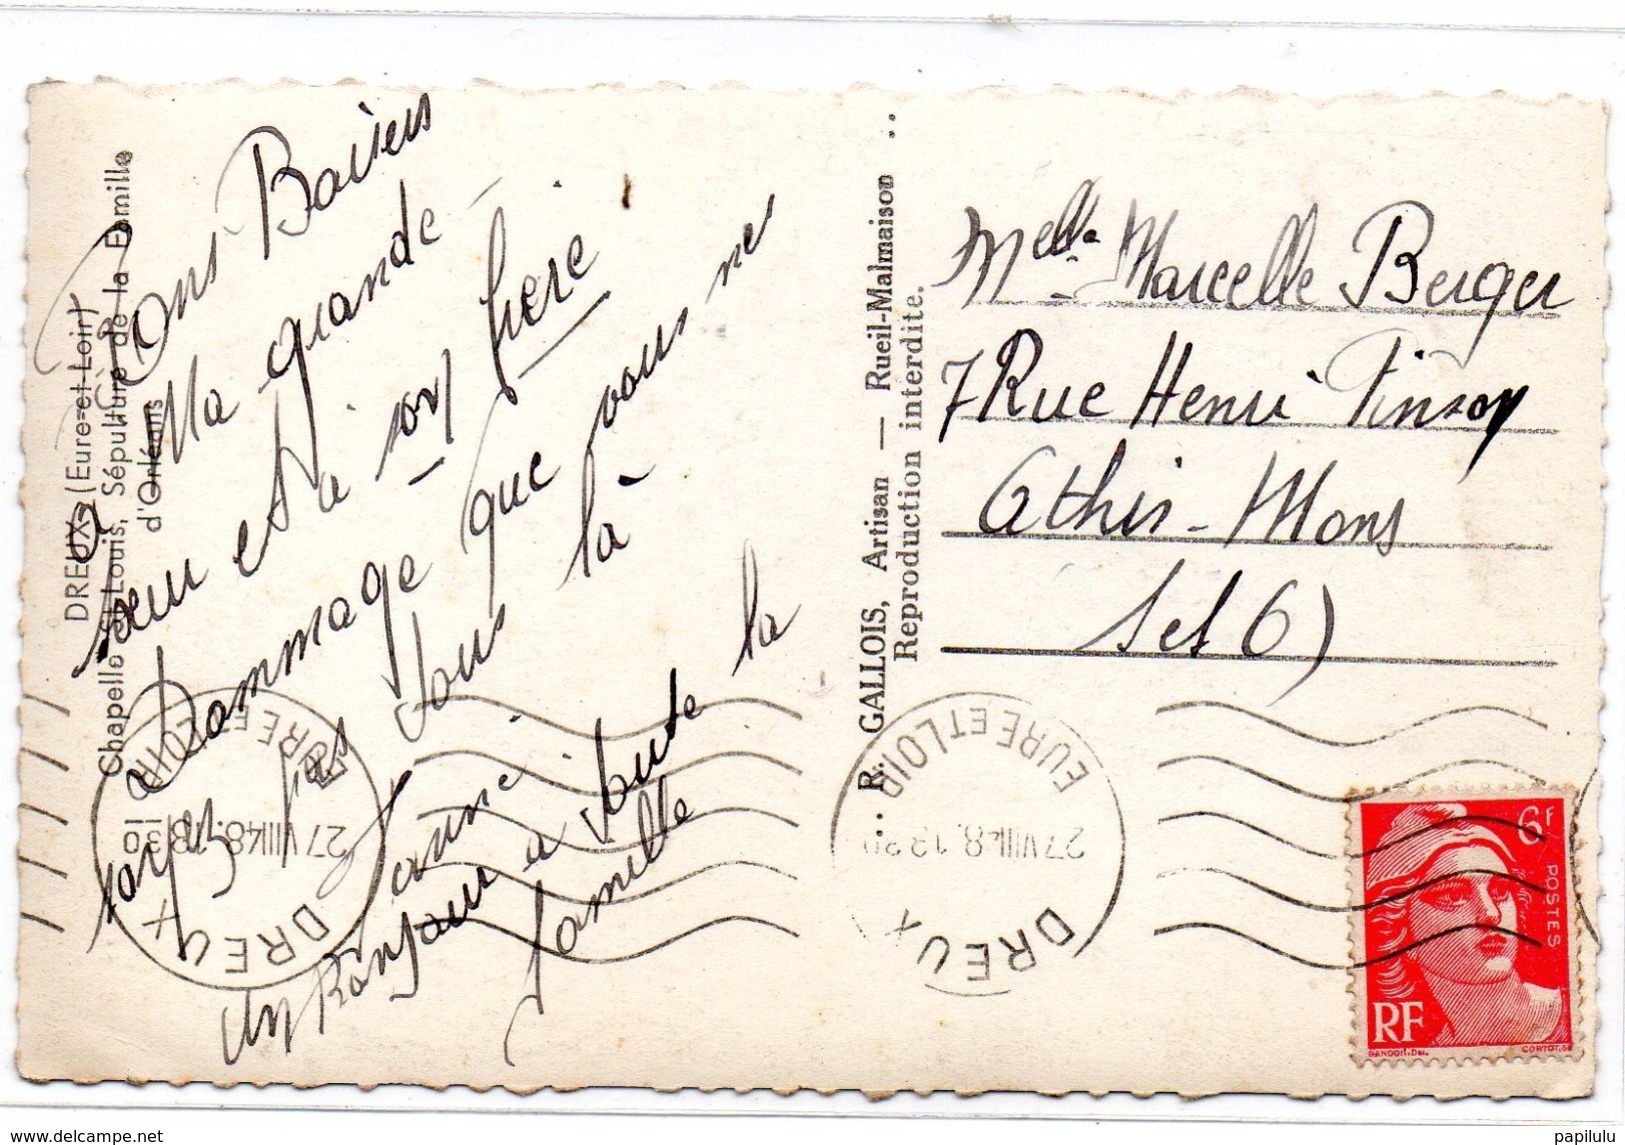 DREUX (Eure-et-Loir)
Chapelle St-Louis, Sépulture de la Famille
d'Orléans
Bons Baisers
Ma grande
sœur est
à son frère
Dommage que vous ne
soyez pas tous là
Un Bonjour à toute la
famille
R. GALLOIS, Artisan — Rueil-Malmaison
Reproduction interdite.
Melle Marcelle Berger
7 Rue Henri Pinson
Athis-Mons
S et O)
DREUX
27 VIII 48. 18 30
EURE ET LOIR
DREUX
27 VIII 48. 18 30
EURE ET LOIR
6F
POSTES
RF
GANDON.Del.
CORTOT.SC
papilulu
www.delcampe.net